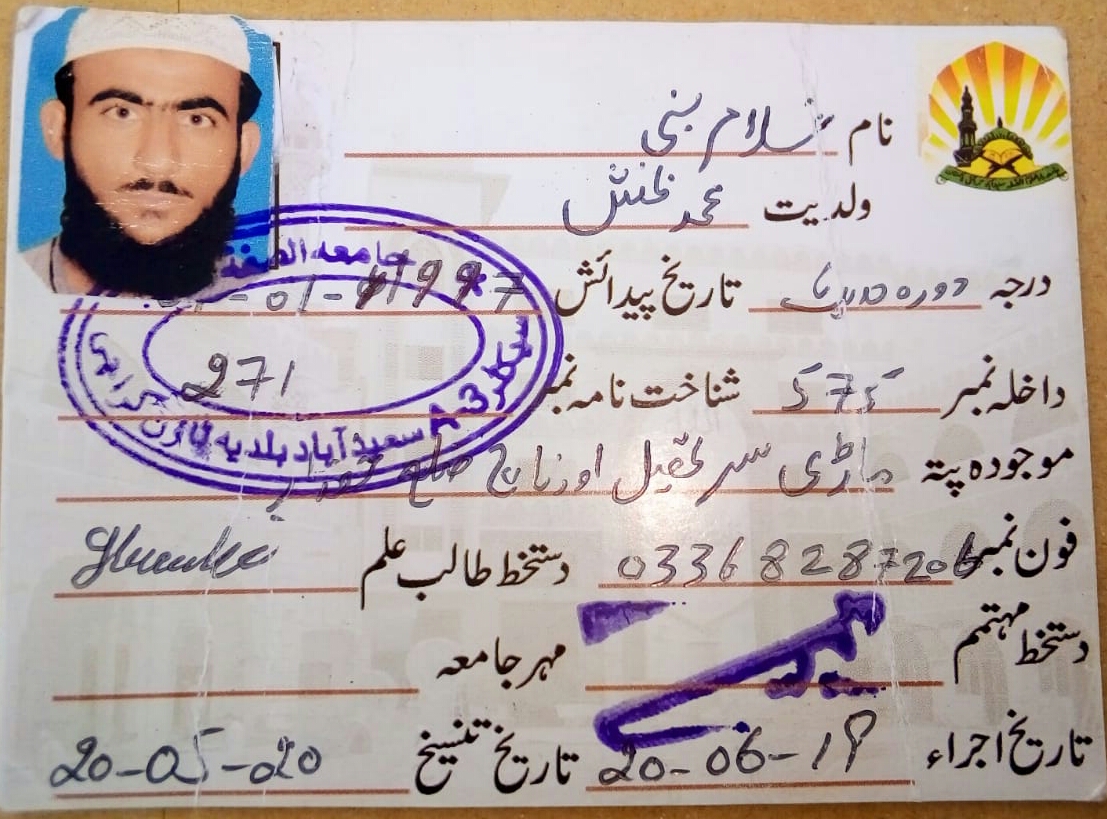 نام غلام نبی
ولدیت محمد
درجہ دورہ حدیث تاریخ پیدائش 01-01-1997
داخلہ نمبر 575 شناخت نامہ نمبر 271
موجودہ پتہ ماڑی سر تحصیل اورناچ ضلع خوزدار
فون نمبر 03368287206 دستخط طالب علم
دستخط مہتمم مہر جامعہ
تاریخ اجراء 20-06-19 تاریخ تنسیخ 20-05-20
جامعہ الصفہ
سیکٹر A 3 سعیدآباد بلدیہ ٹاؤن کراچی